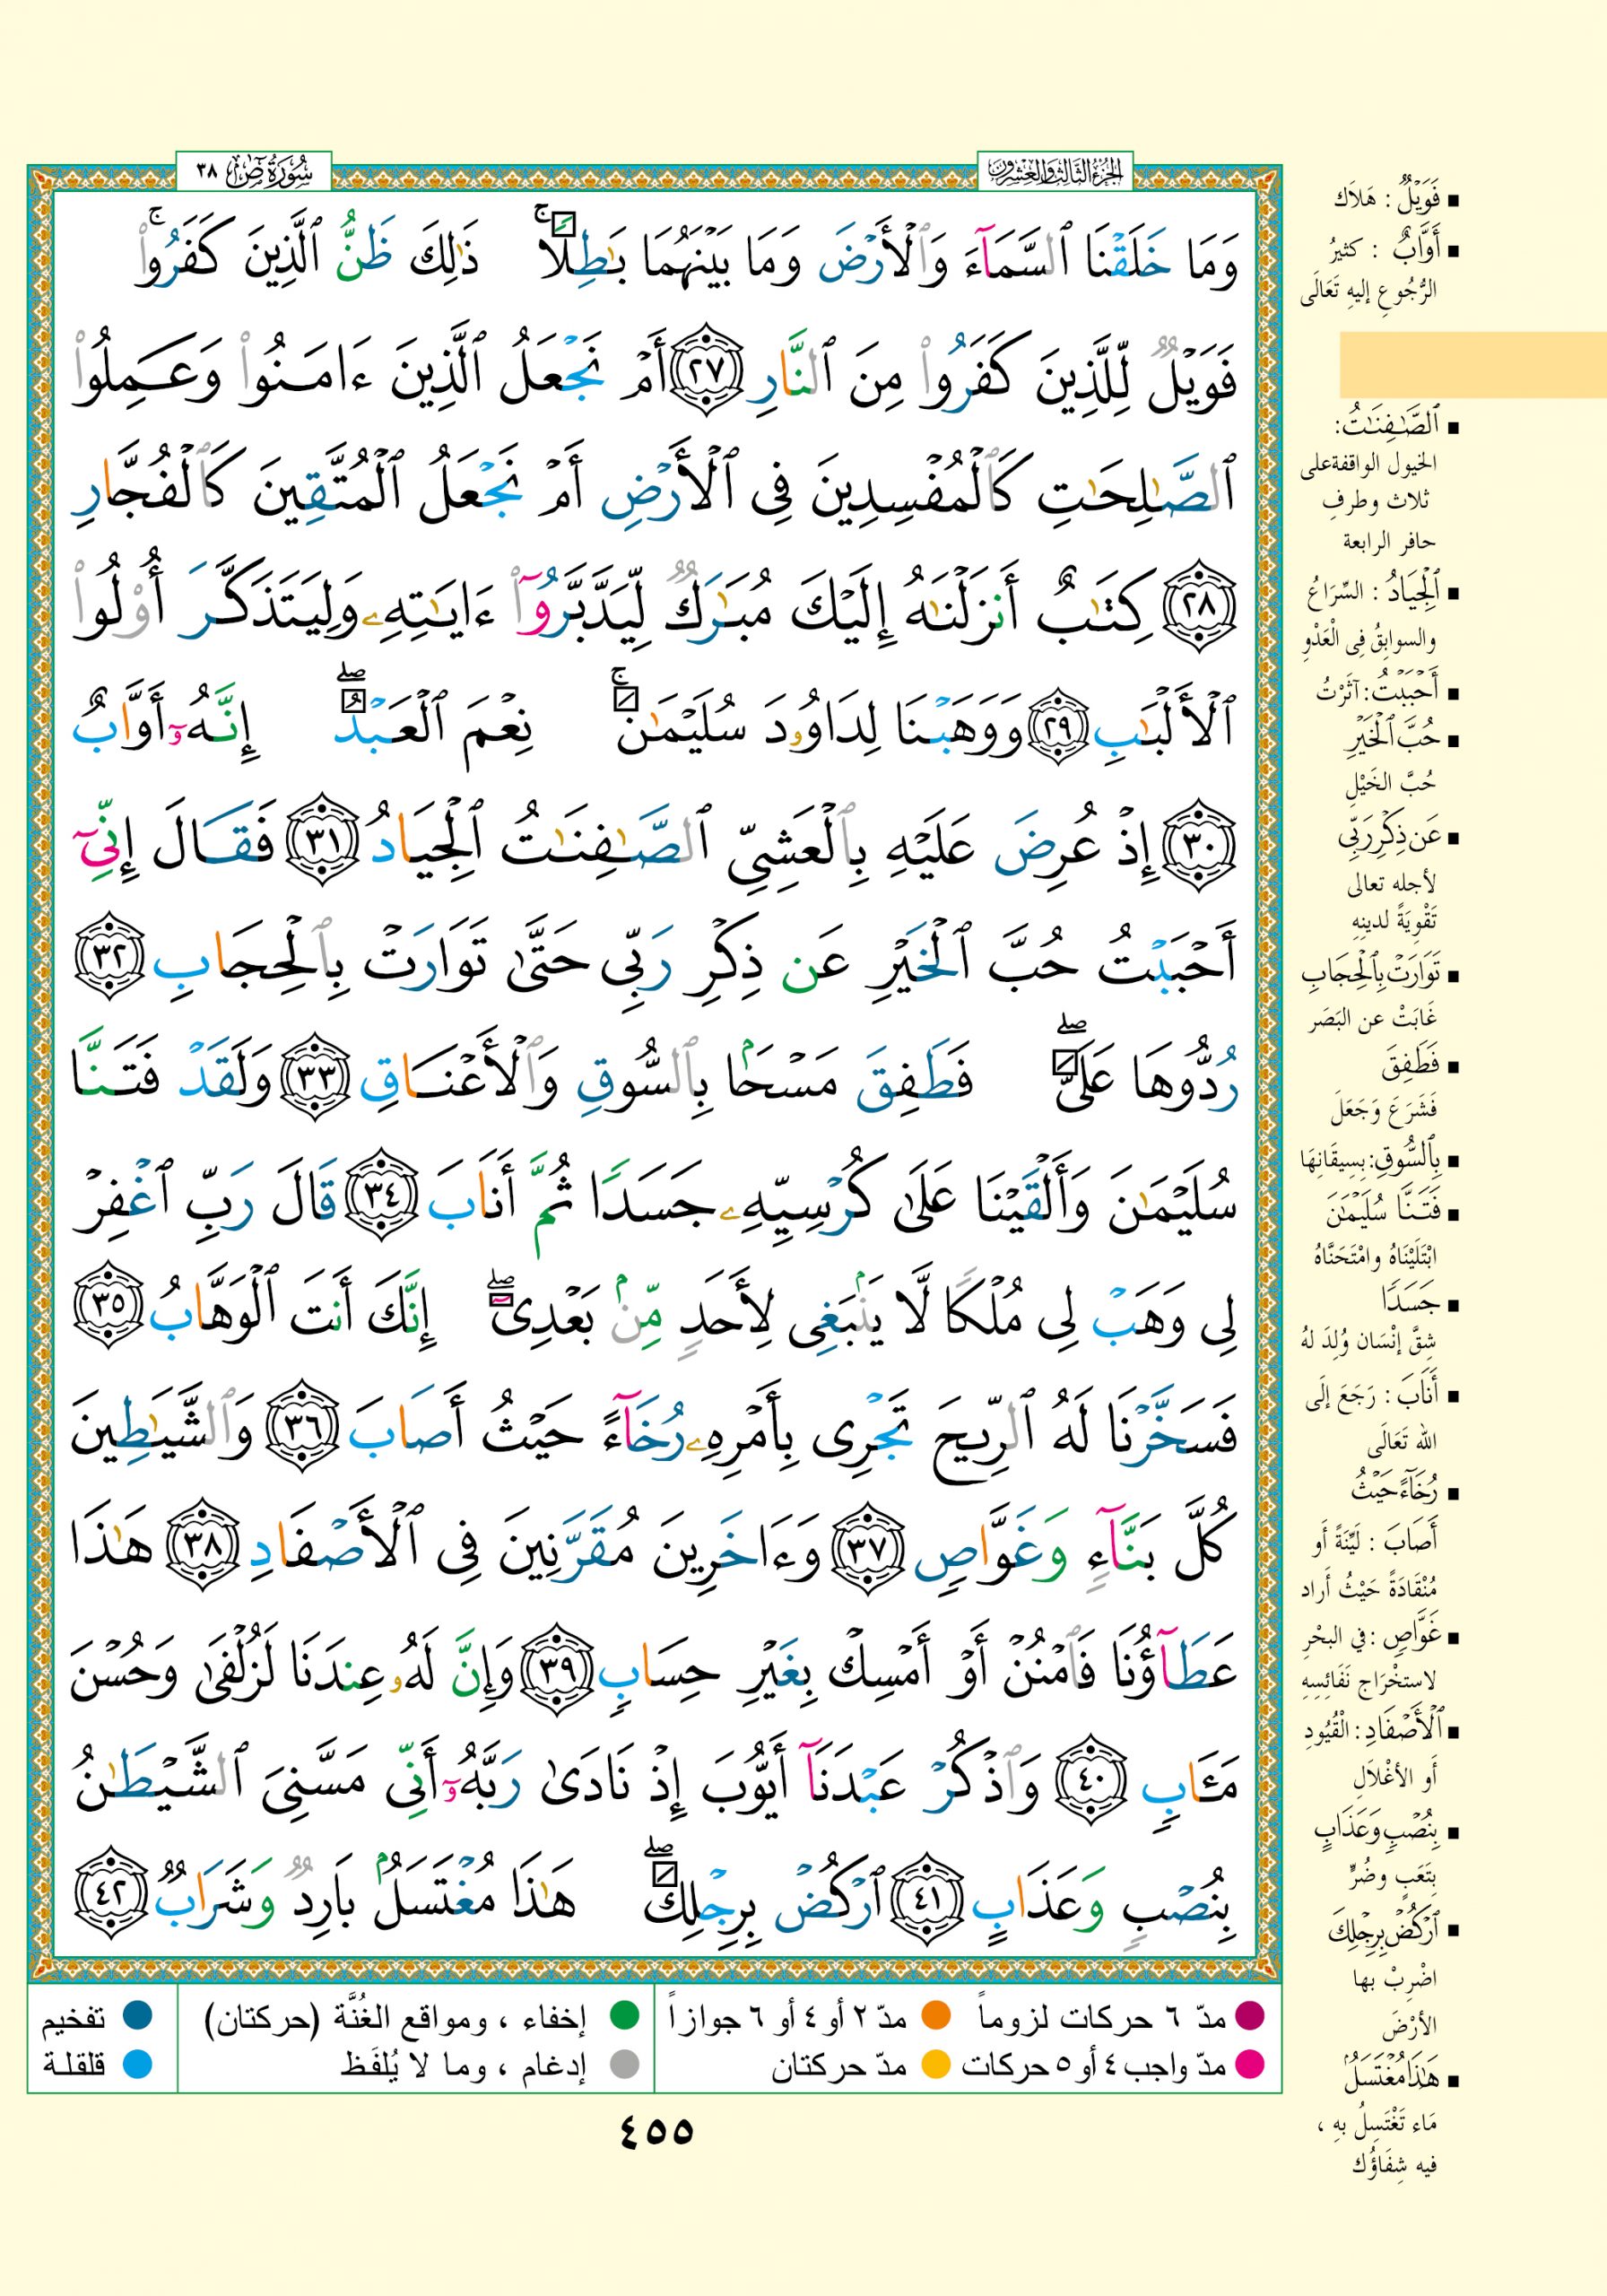 الجزء الثالث والعشرون
سُورَةُ صٓ ٣٨
وَمَا خَلَقْنَا ٱلسَّمَآءَ وَٱلْأَرْضَ وَمَا بَيْنَهُمَا بَٰطِلًا ۚ ذَٰلِكَ ظَنُّ ٱلَّذِينَ كَفَرُوا۟ ۚ
فَوَيْلٌ لِّلَّذِينَ كَفَرُوا۟ مِنَ ٱلنَّارِ ٢٧ أَمْ نَجْعَلُ ٱلَّذِينَ ءَامَنُوا۟ وَعَمِلُوا۟
ٱلصَّٰلِحَٰتِ كَٱلْمُفْسِدِينَ فِى ٱلْأَرْضِ أَمْ نَجْعَلُ ٱلْمُتَّقِينَ كَٱلْفُجَّارِ
٢٨ كِتَٰبٌ أَنزَلْنَٰهُ إِلَيْكَ مُبَٰرَكٌ لِّيَدَّبَّرُوٓا۟ ءَايَٰتِهِۦ وَلِيَتَذَكَّرَ أُو۟لُوا۟
ٱلْأَلْبَٰبِ ٢٩ وَوَهَبْنَا لِدَاوُۥدَ سُلَيْمَٰنَ ۚ نِعْمَ ٱلْعَبْدُ ۖ إِنَّهُۥٓ أَوَّابٌ
٣٠ إِذْ عُرِضَ عَلَيْهِ بِٱلْعَشِىِّ ٱلصَّٰفِنَٰتُ ٱلْجِيَادُ ٣١ فَقَالَ إِنِّىٓ
أَحْبَبْتُ حُبَّ ٱلْخَيْرِ عَن ذِكْرِ رَبِّى حَتَّىٰ تَوَارَتْ بِٱلْحِجَابِ ٣٢
رُدُّوهَا عَلَىَّ ۖ فَطَفِقَ مَسْحًۢا بِٱلسُّوقِ وَٱلْأَعْنَاقِ ٣٣ وَلَقَدْ فَتَنَّا
سُلَيْمَٰنَ وَأَلْقَيْنَا عَلَىٰ كُرْسِيِّهِۦ جَسَدًا ثُمَّ أَنَابَ ٣٤ قَالَ رَبِّ ٱغْفِرْ
لِى وَهَبْ لِى مُلْكًا لَّا يَنۢبَغِى لِأَحَدٍ مِّنۢ بَعْدِىٓ ۖ إِنَّكَ أَنتَ ٱلْوَهَّابُ ٣٥
فَسَخَّرْنَا لَهُ ٱلرِّيحَ تَجْرِى بِأَمْرِهِۦ رُخَآءً حَيْثُ أَصَابَ ٣٦ وَٱلشَّيَٰطِينَ
كُلَّ بَنَّآءٍ وَغَوَّاصٍ ٣٧ وَءَاخَرِينَ مُقَرَّنِينَ فِى ٱلْأَصْفَادِ ٣٨ هَٰذَا
عَطَآؤُنَا فَٱمْنُنْ أَوْ أَمْسِكْ بِغَيْرِ حِسَابٍ ٣٩ وَإِنَّ لَهُۥ عِندَنَا لَزُلْفَىٰ وَحُسْنَ
مَـَٔابٍ ٤٠ وَٱذْكُرْ عَبْدَنَآ أَيُّوبَ إِذْ نَادَىٰ رَبَّهُۥٓ أَنِّى مَسَّنِىَ ٱلشَّيْطَٰنُ
بِنُصْبٍ وَعَذَابٍ ٤١ ٱرْكُضْ بِرِجْلِكَ ۖ هَٰذَا مُغْتَسَلٌۢ بَارِدٌ وَشَرَابٌ ٤٢
فَوَيْلٌ : هَلاَك
أَوَّابٌ : كثيرُ
الرُّجُوعِ إليهِ تَعَالَى
ٱلصَّٰفِنَٰتُ:
الخيول الواقفة على
ثلاث وطرفِ
حافر الرابعة
ٱلْجِيَادُ : السِّرَاعُ
والسوابِقُ فِى الْعَدْوِ
أَحْبَبْتُ: آثَرْتُ
حُبَّ ٱلْخَيْرِ
حُبَّ الخَيْلِ
عَن ذِكْرِ رَبِّى
لأجله تعالى
تَقْوِيَةً لدينِهِ
تَوَارَتْ بِٱلْحِجَابِ
غَابَتْ عن البَصَر
فَطَفِقَ
فَشَرَعَ وَجَعَلَ
بِٱلسُّوقِ: بِسِيقَانِهَا
فَتَنَّا سُلَيْمَٰنَ
ابْتَلَيْنَاهُ وامْتَحَنَّاهُ
جَسَدًا
شِقَّ إنْسَان وُلِدَ لهُ
أَنَابَ : رَجَعَ إلَى
الله تَعَالَى
رُخَآءً حَيْثُ
أَصَابَ : لَيِّنَةً أَو
مُنْقَادَةً حَيْثُ أَراد
غَوَّاصٍ : في البحْرِ
لاستخْرَاج نَفَائِسِهِ
ٱلْأَصْفَادِ : الْقُيُودِ
أَو الأغْلاَلِ
بِنُصْبٍ وَعَذَابٍ
بِتَعَبٍ وضُرٍّ
ٱرْكُضْ بِرِجْلِكَ
اضْرِبْ بها
الأرْضَ
هَٰذَا مُغْتَسَلٌۢ
مَاء تَغْتَسِلُ بهِ ،
فيه شِفَاؤُك
مدّ ٦ حركات لزوماً مدّ ٢ أو ٤ أو ٦ جوازاً إخفاء ، ومواقع الغُنَّة (حركتان) تفخيم
مدّ واجب ٤ أو ٥ حركات مدّ حركتان إدغام ، وما لا يُلفَظ قلقلة
٤٥٥